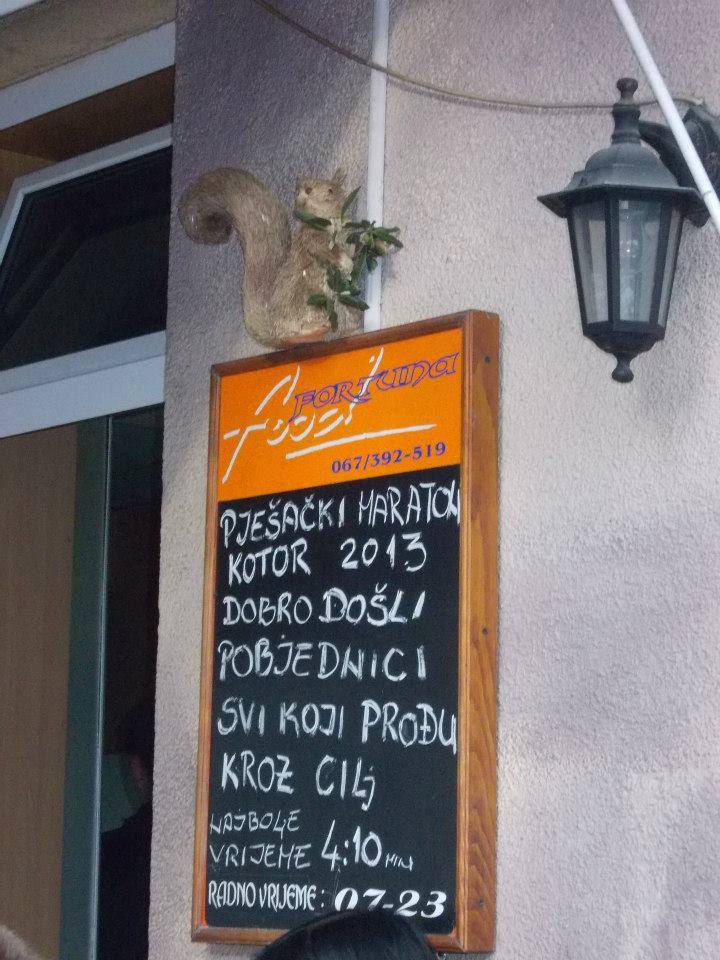 FORTUNA
food
067/392-519
PJEŠAČKI MARATON
KOTOR 2013
DOBRO DOŠLI
POBJEDNICI
SVI KOJI PROĐU
KROZ CILJ
NAJBOLJE
VRIJEME 4:10 MIN
RADNO VRIJEME: 07-23